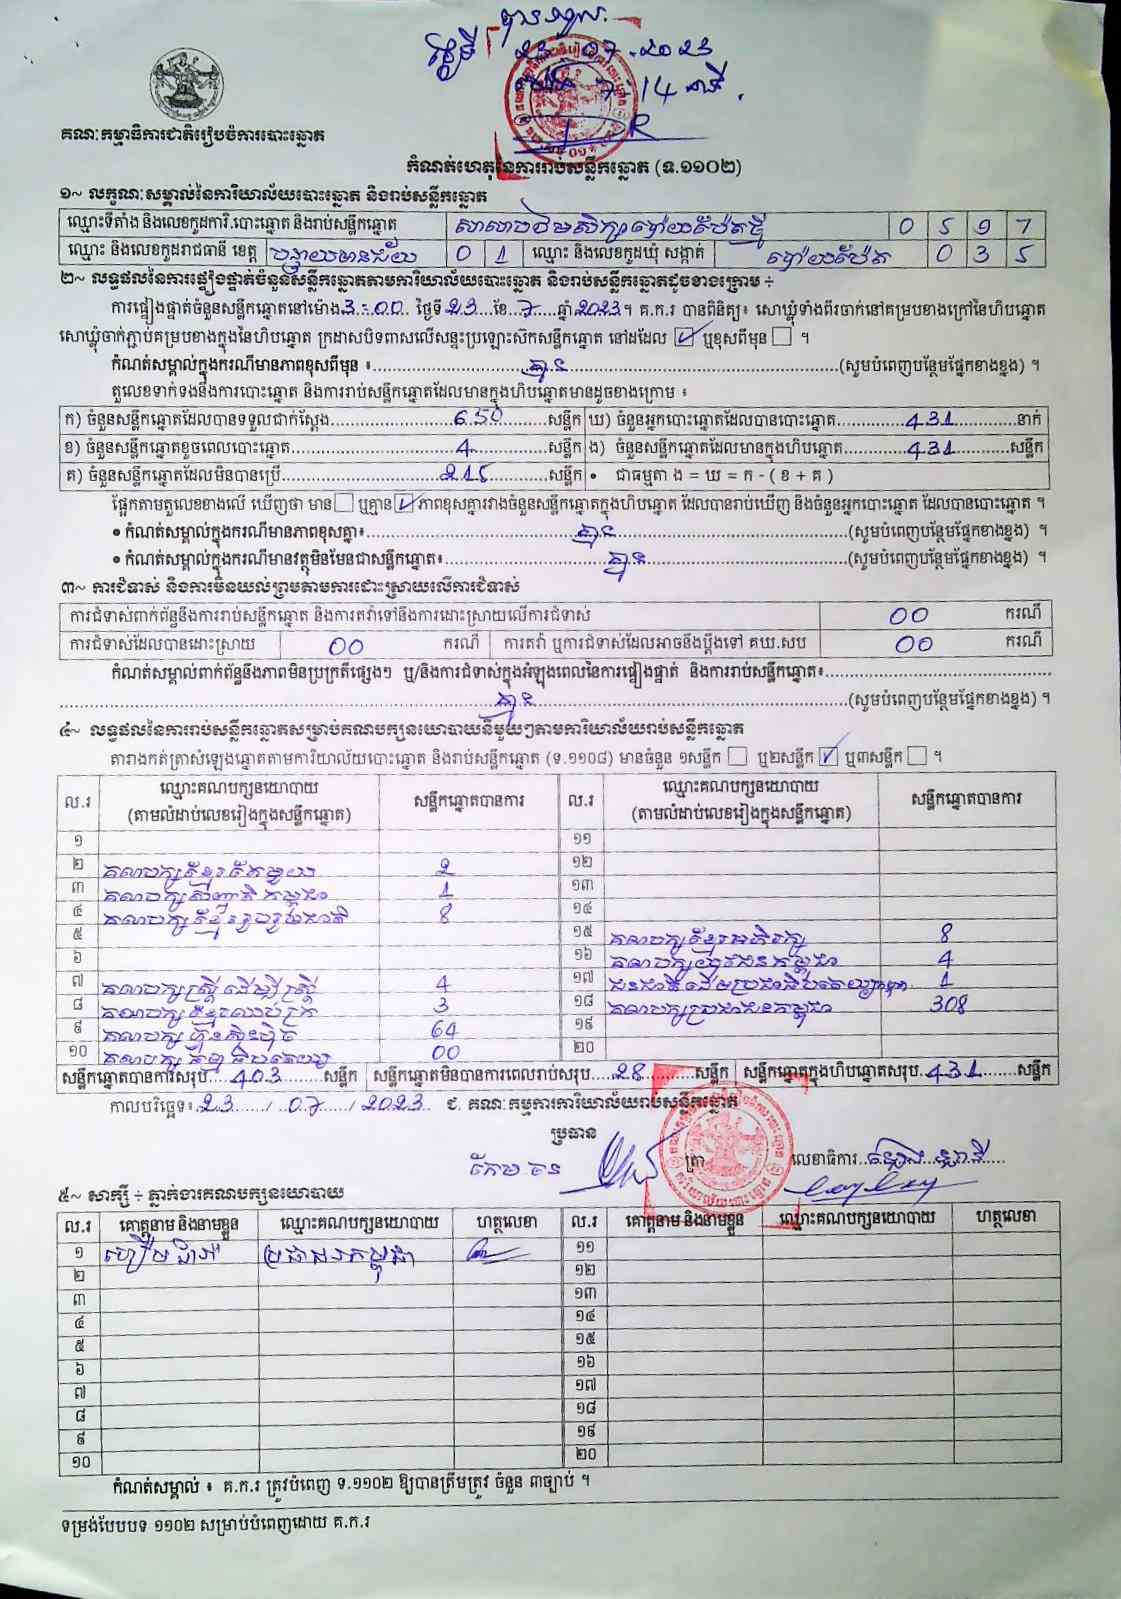 បានទទួល
ថ្ងៃទី 23.07.2023
14 នាទី.
គណៈកម្មាធិការជាតិរៀបចំការបោះឆ្នោត
កំណត់ហេតុនៃការរាប់សន្លឹកឆ្នោត (ទ.១១០២)
១~ លក្ខណៈសម្គាល់នៃការិយាល័យបោះឆ្នោត និងរាប់សន្លឹកឆ្នោត
ឈ្មោះទីតាំង និងលេខកូដការិ.បោះឆ្នោត និងរាប់សន្លឹកឆ្នោត សាលាបឋមសិក្សាប៉ោយប៉ែតថ្មី 0 5 9 7
ឈ្មោះ និងលេខកូដរាជធានី ខេត្ត បន្ទាយមានជ័យ 0 1 ឈ្មោះ និងលេខកូដឃុំ សង្កាត់ ប៉ោយប៉ែត 0 3 5
២~ លទ្ធផលនៃការផ្ទៀងផ្ទាត់ចំនួនសន្លឹកឆ្នោតតាមការិយាល័យបោះឆ្នោត និងរាប់សន្លឹកឆ្នោតដូចខាងក្រោម ÷
ការផ្ទៀងផ្ទាត់ចំនួនសន្លឹកឆ្នោតនៅម៉ោង 3:00 ថ្ងៃទី 23 ខែ 7 ឆ្នាំ 2023។ គ.ក.រ បានពិនិត្យ៖ សោឃ្លុំទាំងពីរចាក់នៅគម្របខាងក្រៅនៃហិបឆ្នោត
សោឃ្លុំចាក់ភ្ជាប់គម្របខាងក្នុងនៃហិបឆ្នោត ក្រដាសបិទពាសលើសន្ទះប្រឡោះស៊កសន្លឹកឆ្នោត នៅដដែល ✓ ឬខុសពីមុន ។
កំណត់សម្គាល់ក្នុងករណីមានភាពខុសពីមុន ៖ គ្មាន (សូមបំពេញបន្ថែមផ្នែកខាងខ្នង) ។
តួលេខទាក់ទងនឹងការបោះឆ្នោត និងការរាប់សន្លឹកឆ្នោតដែលមានក្នុងហិបឆ្នោតមានដូចខាងក្រោម ៖
ក) ចំនួនសន្លឹកឆ្នោតដែលបានទទួលជាក់ស្តែង 650 សន្លឹក ឃ) ចំនួនអ្នកបោះឆ្នោតដែលបានបោះឆ្នោត 431 នាក់
ខ) ចំនួនសន្លឹកឆ្នោតខូចពេលបោះឆ្នោត 4 សន្លឹក ង) ចំនួនសន្លឹកឆ្នោតដែលមានក្នុងហិបឆ្នោត 431 សន្លឹក
គ) ចំនួនសន្លឹកឆ្នោតដែលមិនបានប្រើ 215 សន្លឹក • ជាធម្មតា ង = ឃ = ក - ( ខ + គ )
ផ្អែកតាមតួលេខខាងលើ ឃើញថា មាន ឬគ្មាន ✓ ភាពខុសគ្នារវាងចំនួនសន្លឹកឆ្នោតក្នុងហិបឆ្នោត ដែលបានរាប់ឃើញ និងចំនួនអ្នកបោះឆ្នោត ដែលបានបោះឆ្នោត ។
• កំណត់សម្គាល់ក្នុងករណីមានភាពខុសគ្នា៖ គ្មាន (សូមបំពេញបន្ថែមផ្នែកខាងខ្នង) ។
• កំណត់សម្គាល់ក្នុងករណីមានវត្ថុមិនមែនជាសន្លឹកឆ្នោត៖ គ្មាន (សូមបំពេញបន្ថែមផ្នែកខាងខ្នង) ។
៣~ ការជំទាស់ និងការមិនយល់ព្រមតាមការដោះស្រាយលើការជំទាស់
ការជំទាស់ពាក់ព័ន្ធនឹងការរាប់សន្លឹកឆ្នោត និងការតវ៉ាទៅនឹងការដោះស្រាយលើការជំទាស់ 00 ករណី
ការជំទាស់ដែលបានដោះស្រាយ 00 ករណី ការតវ៉ា ឬការជំទាស់ដែលអាចនឹងប្តឹងទៅ គឃ.សប 00 ករណី
កំណត់សម្គាល់ពាក់ព័ន្ធនឹងភាពមិនប្រក្រតីផ្សេងៗ ឬ/និងការជំទាស់ក្នុងអំឡុងពេលនៃការផ្ទៀងផ្ទាត់ និងការរាប់សន្លឹកឆ្នោត៖
គ្មាន (សូមបំពេញបន្ថែមផ្នែកខាងខ្នង) ។
៤~ លទ្ធផលនៃការរាប់សន្លឹកឆ្នោតសម្រាប់គណបក្សនយោបាយនីមួយៗតាមការិយាល័យរាប់សន្លឹកឆ្នោត
តារាងកត់ត្រាសំឡេងឆ្នោតតាមការិយាល័យបោះឆ្នោត និងរាប់សន្លឹកឆ្នោត (ទ.១១០៨) មានចំនួន ១សន្លឹក ឬ២សន្លឹក ✓ ឬ៣សន្លឹក ។
ល.រ ឈ្មោះគណបក្សនយោបាយ (តាមលំដាប់លេខរៀងក្នុងសន្លឹកឆ្នោត) សន្លឹកឆ្នោតបានការ ល.រ ឈ្មោះគណបក្សនយោបាយ (តាមលំដាប់លេខរៀងក្នុងសន្លឹកឆ្នោត) សន្លឹកឆ្នោតបានការ
១ ១១
២ គណបក្សខ្មែរតែមួយ 2 ១២
៣ គណបក្សសញ្ជាតិកម្ពុជា 1 ១៣
៤ គណបក្សខ្មែររួបរួមជាតិ 8 ១៤
៥ ១៥ គណបក្សខ្មែរអភិរក្ស 8
៦ ១៦ គណបក្សយុវជនកម្ពុជា 4
៧ គណបក្សស្ត្រីដើម្បីស្ត្រី 4 ១៧ ជនជាតិដើមប្រជាធិបតេយ្យកម្ពុជា 1
៨ គណបក្សខ្មែរឈប់ក្រ 3 ១៨ គណបក្សប្រជាជនកម្ពុជា 308
៩ គណបក្ស ហ៊្វុនស៊ិនប៉ិច 64 ១៩
១០ គណបក្ស កម្លាំងប្រជាធិបតេយ្យ 00 ២០
សន្លឹកឆ្នោតបានការសរុប 403 សន្លឹក សន្លឹកឆ្នោតមិនបានការពេលរាប់សរុប 28 សន្លឹក សន្លឹកឆ្នោតក្នុងហិបឆ្នោតសរុប 431 សន្លឹក
កាលបរិច្ឆេទ៖ 23 / 07 / 2023 ជ. គណៈកម្មការការិយាល័យរាប់សន្លឹកឆ្នោត
ប្រធាន
កែម ចន ត្រា លេខាធិការ
៥~ សាក្សី ÷ ភ្នាក់ងារគណបក្សនយោបាយ
ល.រ គោត្តនាម និងនាមខ្លួន ឈ្មោះគណបក្សនយោបាយ ហត្ថលេខា ល.រ គោត្តនាម និងនាមខ្លួន ឈ្មោះគណបក្សនយោបាយ ហត្ថលេខា
១ ប្រជាជនកម្ពុជា ១១
២ ១២
៣ ១៣
៤ ១៤
៥ ១៥
៦ ១៦
៧ ១៧
៨ ១៨
៩ ១៩
១០ ២០
កំណត់សម្គាល់ ៖ គ.ក.រ ត្រូវបំពេញ ទ.១១០២ ឱ្យបានត្រឹមត្រូវ ចំនួន ៣ច្បាប់ ។
ទម្រង់បែបបទ ១១០២ សម្រាប់បំពេញដោយ គ.ក.រ